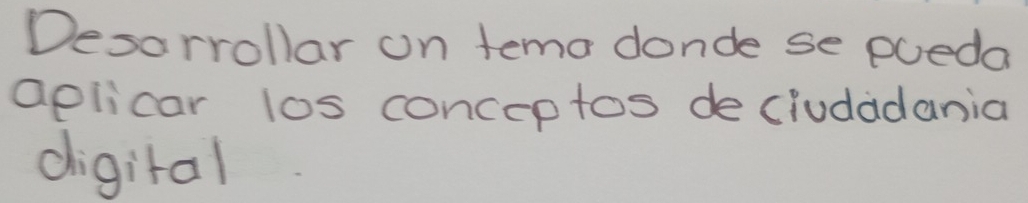 Desarrollar un tema donde se pueda
aplicar los conceptos de ciudadania
digital.